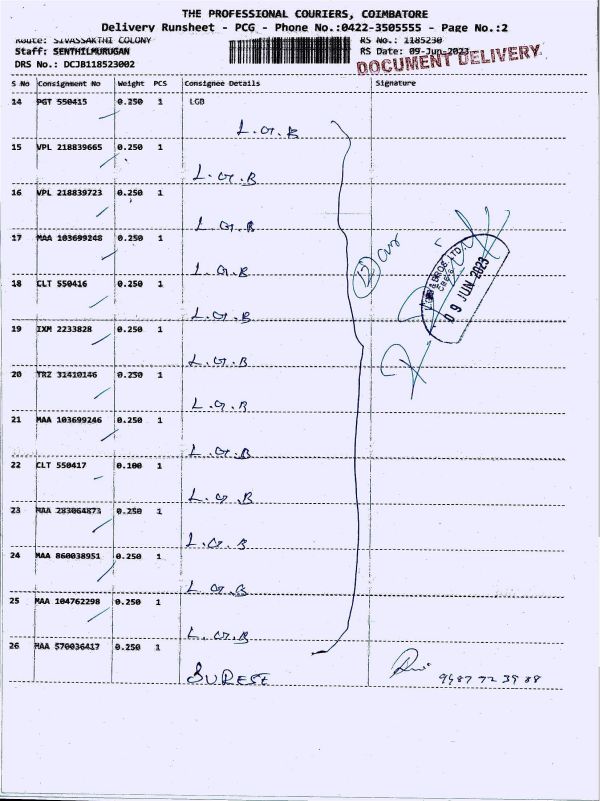 THE PROFESSIONAL COURIERS, COIMBATORE
Delivery Runsheet - PCG - Phone No.:0422-3505555 - Page No.:2
Route: SIVASSAKTHI COLONY RS No.: 1185230
Staff: SENTHILMURUGAN RS Date: 09-Jun-2023
DRS No.: DCJB118523002
DOCUMENT DELIVERY
S No Consignment No Weight PCS Consignee Details Signature
14 PGT 550415 0.250 1 LGB
L.G.B
15 VPL 218839665 0.250 1
L.G.B
16 VPL 218839723 0.250 1
L.G.B
17 MAA 103699248 0.250 1
L.G.B
18 CLT 550416 0.250 1
L.G.B
19 IXM 2233828 0.250 1
L.G.B
20 TRZ 31410146 0.250 1
L.G.B
21 MAA 103699246 0.250 1
L.G.B
22 CLT 550417 0.100 1
L.G.B
23 MAA 283064873 0.250 1
L.G.B
24 MAA 860038951 0.250 1
L.G.B
25 MAA 104762298 0.250 1
L.G.B
26 MAA 570036417 0.250 1
SURESE
12
BROS LTD
09 JUN 2023
9487 72 39 88